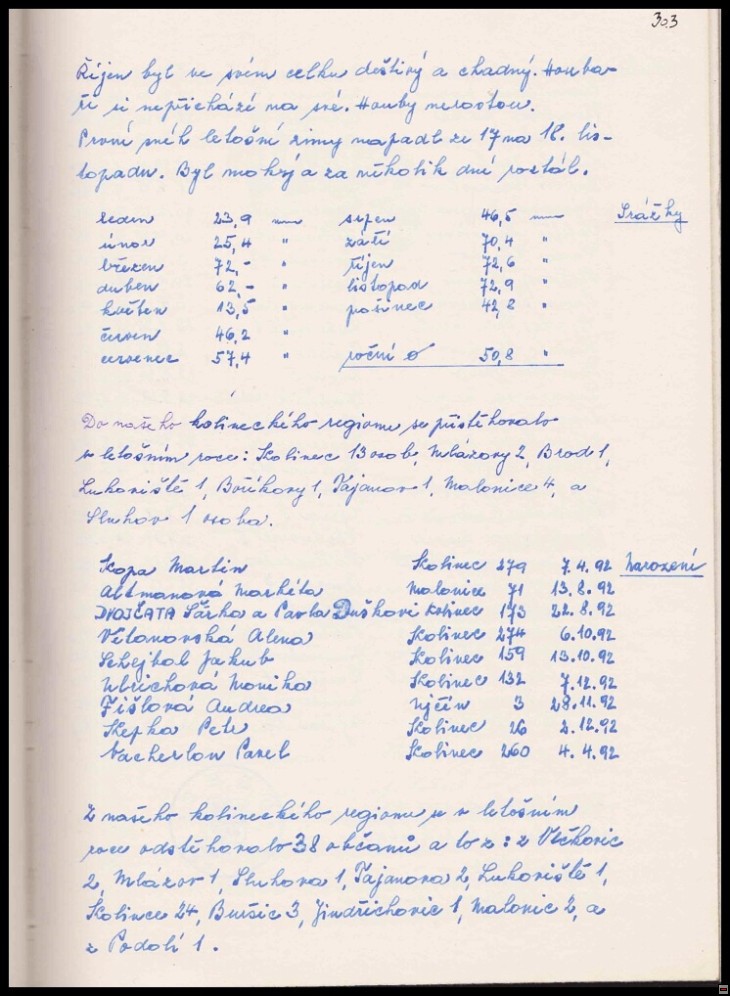 303
Říjen byl ve svém celku deštivý a chladný. Houba-
ři si nepřichází na své. Houby nerostou.
První sníh letošní zimy napadl ze 17 na 18. lis-
topadu. Byl mokrý a za několik dní roztál.
Srážky
leden 23,9 mm srpen 46,5 mm
únor 25,4 " září 70,4 "
březen 72,- " říjen 72,6 "
duben 62,- " listopad 72,9 "
květen 13,5 " posinec 42,8 "
červen 46,2 "
červenec 57,4 " roční ø 50,8 "
Do našeho kolineckého regionu se přistěhovalo
v letošním roce: Kolinec 13 osob, Mlázovy 2, Brod 1,
Lukoviště 1, Boříkovy 1, Tajanov 1, Malonice 4, a
Sluhov 1 osoba.
Narození
Kopa Martin Kolinec 279 7.4.92
Altmanová Markéta Malonice 71 13.8.92
DVOJČATA Šárka a Pavla Duškovi Kolinec 173 22.8.92
Kolinec 274 6.10.92
Schejbal Jakub Kolinec 159 13.10.92
Ulbrichová Monika Kolinec 132 7.12.92
Fišlová Andrea Ujčín 3 28.11.92
Petr Kolinec 26 2.12.92
Vacherlon Pavel Kolinec 260 4.4.92
Z našeho kolineckého regionu se v letošním
roce odstěhovalo 38 občanů a to z: z Vlčkovic
2, Mlázov 1, Sluhova 1, Tajanova 2, Lukoviště 1,
Kolince 24, Buršic 3, Jindřichovic 1, Malonic 2, a
z Podolí 1.